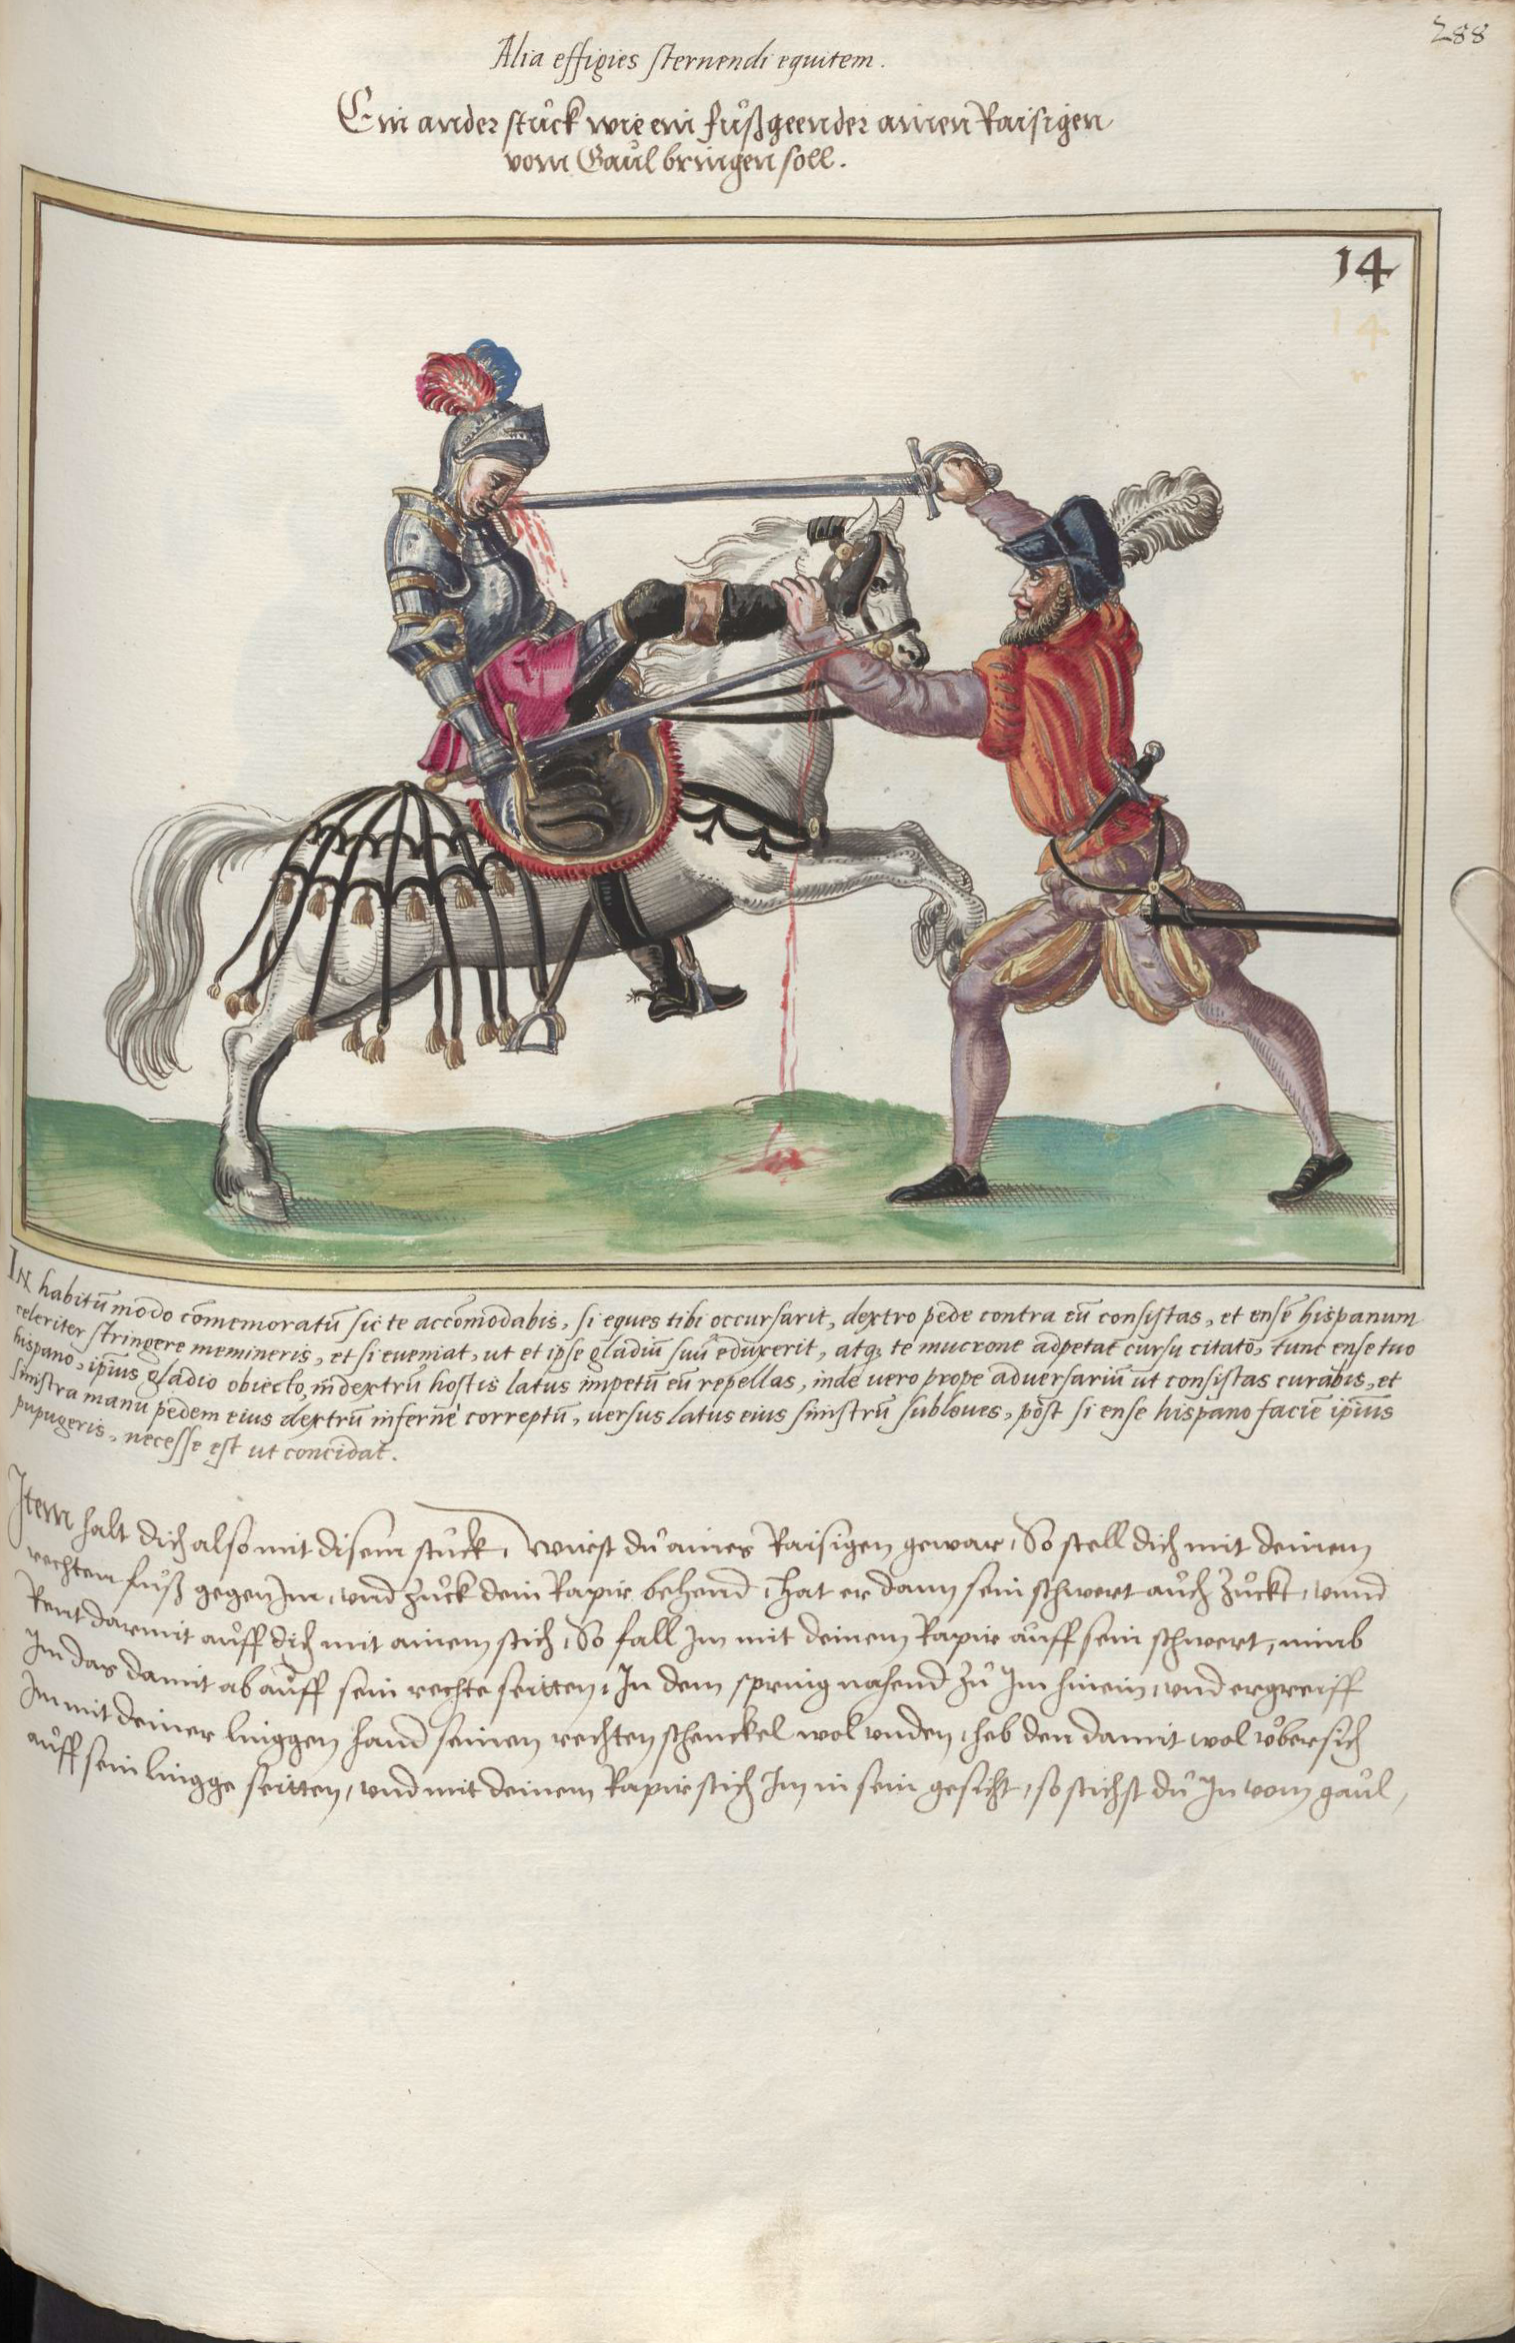 288
Alia effigies sternendi equitem.
Ein ander stuͦck wie ein fuͦßgeender ainen Raisigen
vom Gaul bringen soll.
14
IN habitū modo cōmemoratū sic te accōmodabis, si eques tibi occursarit, dextro pede contra eū consistas, et ensē hispanum
celeriter stringere memineris, et si eveniat, ut et ipse gladiū suū eduxerit, atq; te mucrone adpetat cursu citato, tunc ense tuo
hispano, ipsius gladio obiecto, in dextrū hostis latus impetū eū repellas, inde vero prope adversariū ut consistas curabis, et
sinistra manu pedem eius dextrū infernè correptū, versus latus eius sinistrū subleves, pōst si ense hispano faciē ipsius
pupugeris, necesse est ut concidat.
Item halt dich also mit disem stuͦck, Wirst du aines Raisigen gewar, So stell dich mit deinem
rechten fuͦß gegen Im, und zuͦck dein Rapir behend, hat er dann sein schwert auch zuͦckt, unnd
Rent darmit auff dich mit ainem stich, So fall Im mit deinem Rapir auff sein schwert, nimb
Im das damit ab auff sein rechte seitten, In dem spring nahend zu Im hinein, und ergreiff
Im mit deiner linggen hand seinen rechten schenckel wol unden, heb den damit wol uͤbersich
auff sein lingge seitten, und mit deinem Rapir stich Im in sein gesicht, so stichst du In vom gaul,